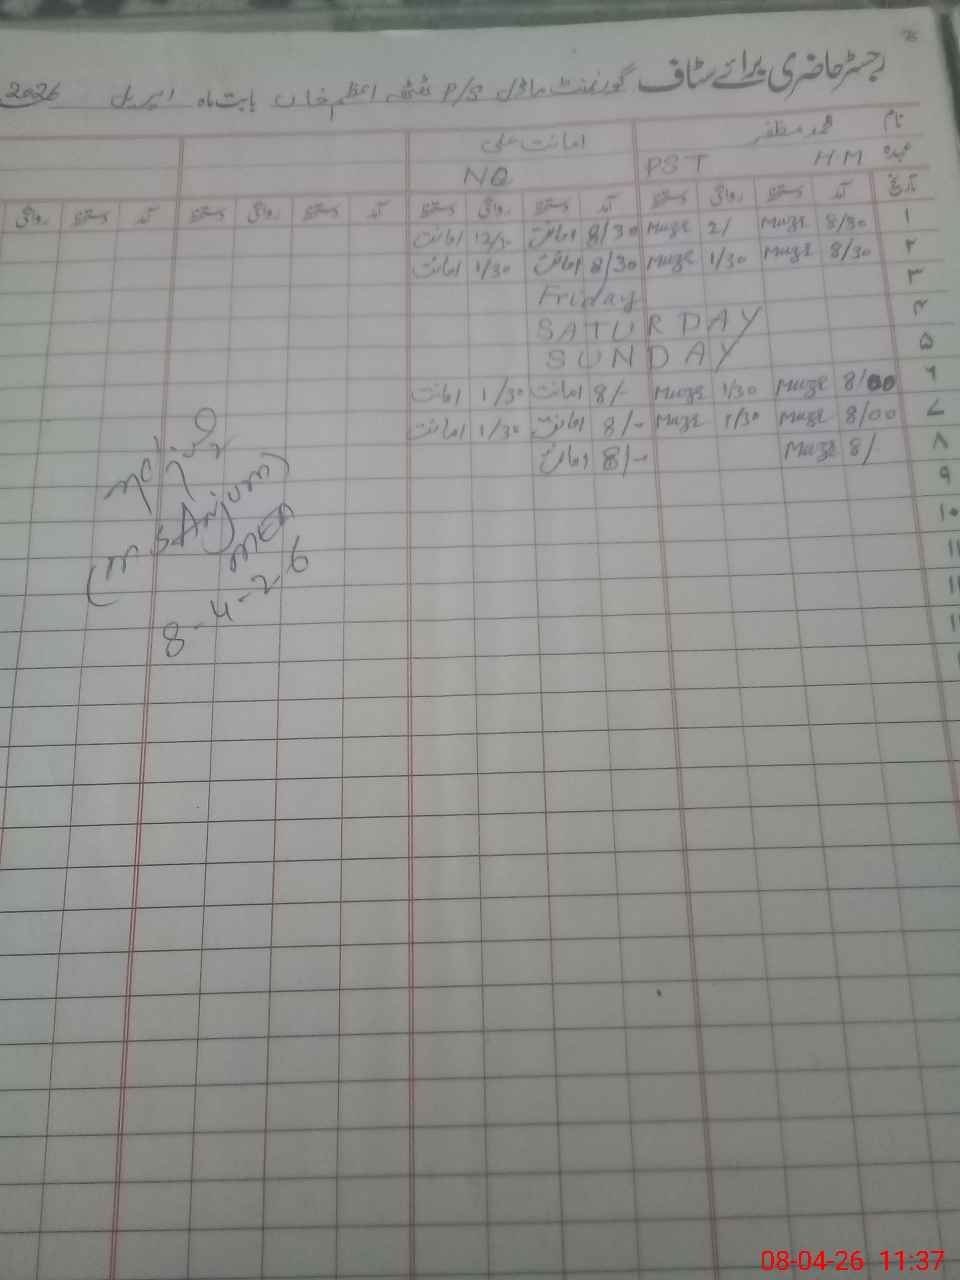 رجسٹر حاضری برائے سٹاف گورنمنٹ ماڈل P/S ٹھٹھہ اعظم خان بابت ماہ اپریل 2026
نام محمد مظفر امانت علی
عہدہ HM PST NQ
تاریخ آمد دستخط روانگی دستخط آمد دستخط روانگی دستخط آمد دستخط روانگی دستخط آمد دستخط روانگی
۱ 8/30 Muzr 2/ Muzr 8/30 امانت 12/30 امانت
۲ 8/30 Muzr 1/30 Muzr 8/30 امانت 1/30 امانت
۳ Friday
۴ SATURDAY
۵ SUNDAY
۶ 8/00 Muzr 1/30 Muzr 8/- امانت 1/30 امانت
۷ 8/00 Muzr 1/30 Muzr 8/- امانت 1/30 امانت
۸ 8/ Muzr 8/- امانت
۹
۱۰
(M S Anjum)
MEA
8-4-26
08-04-26 11:37